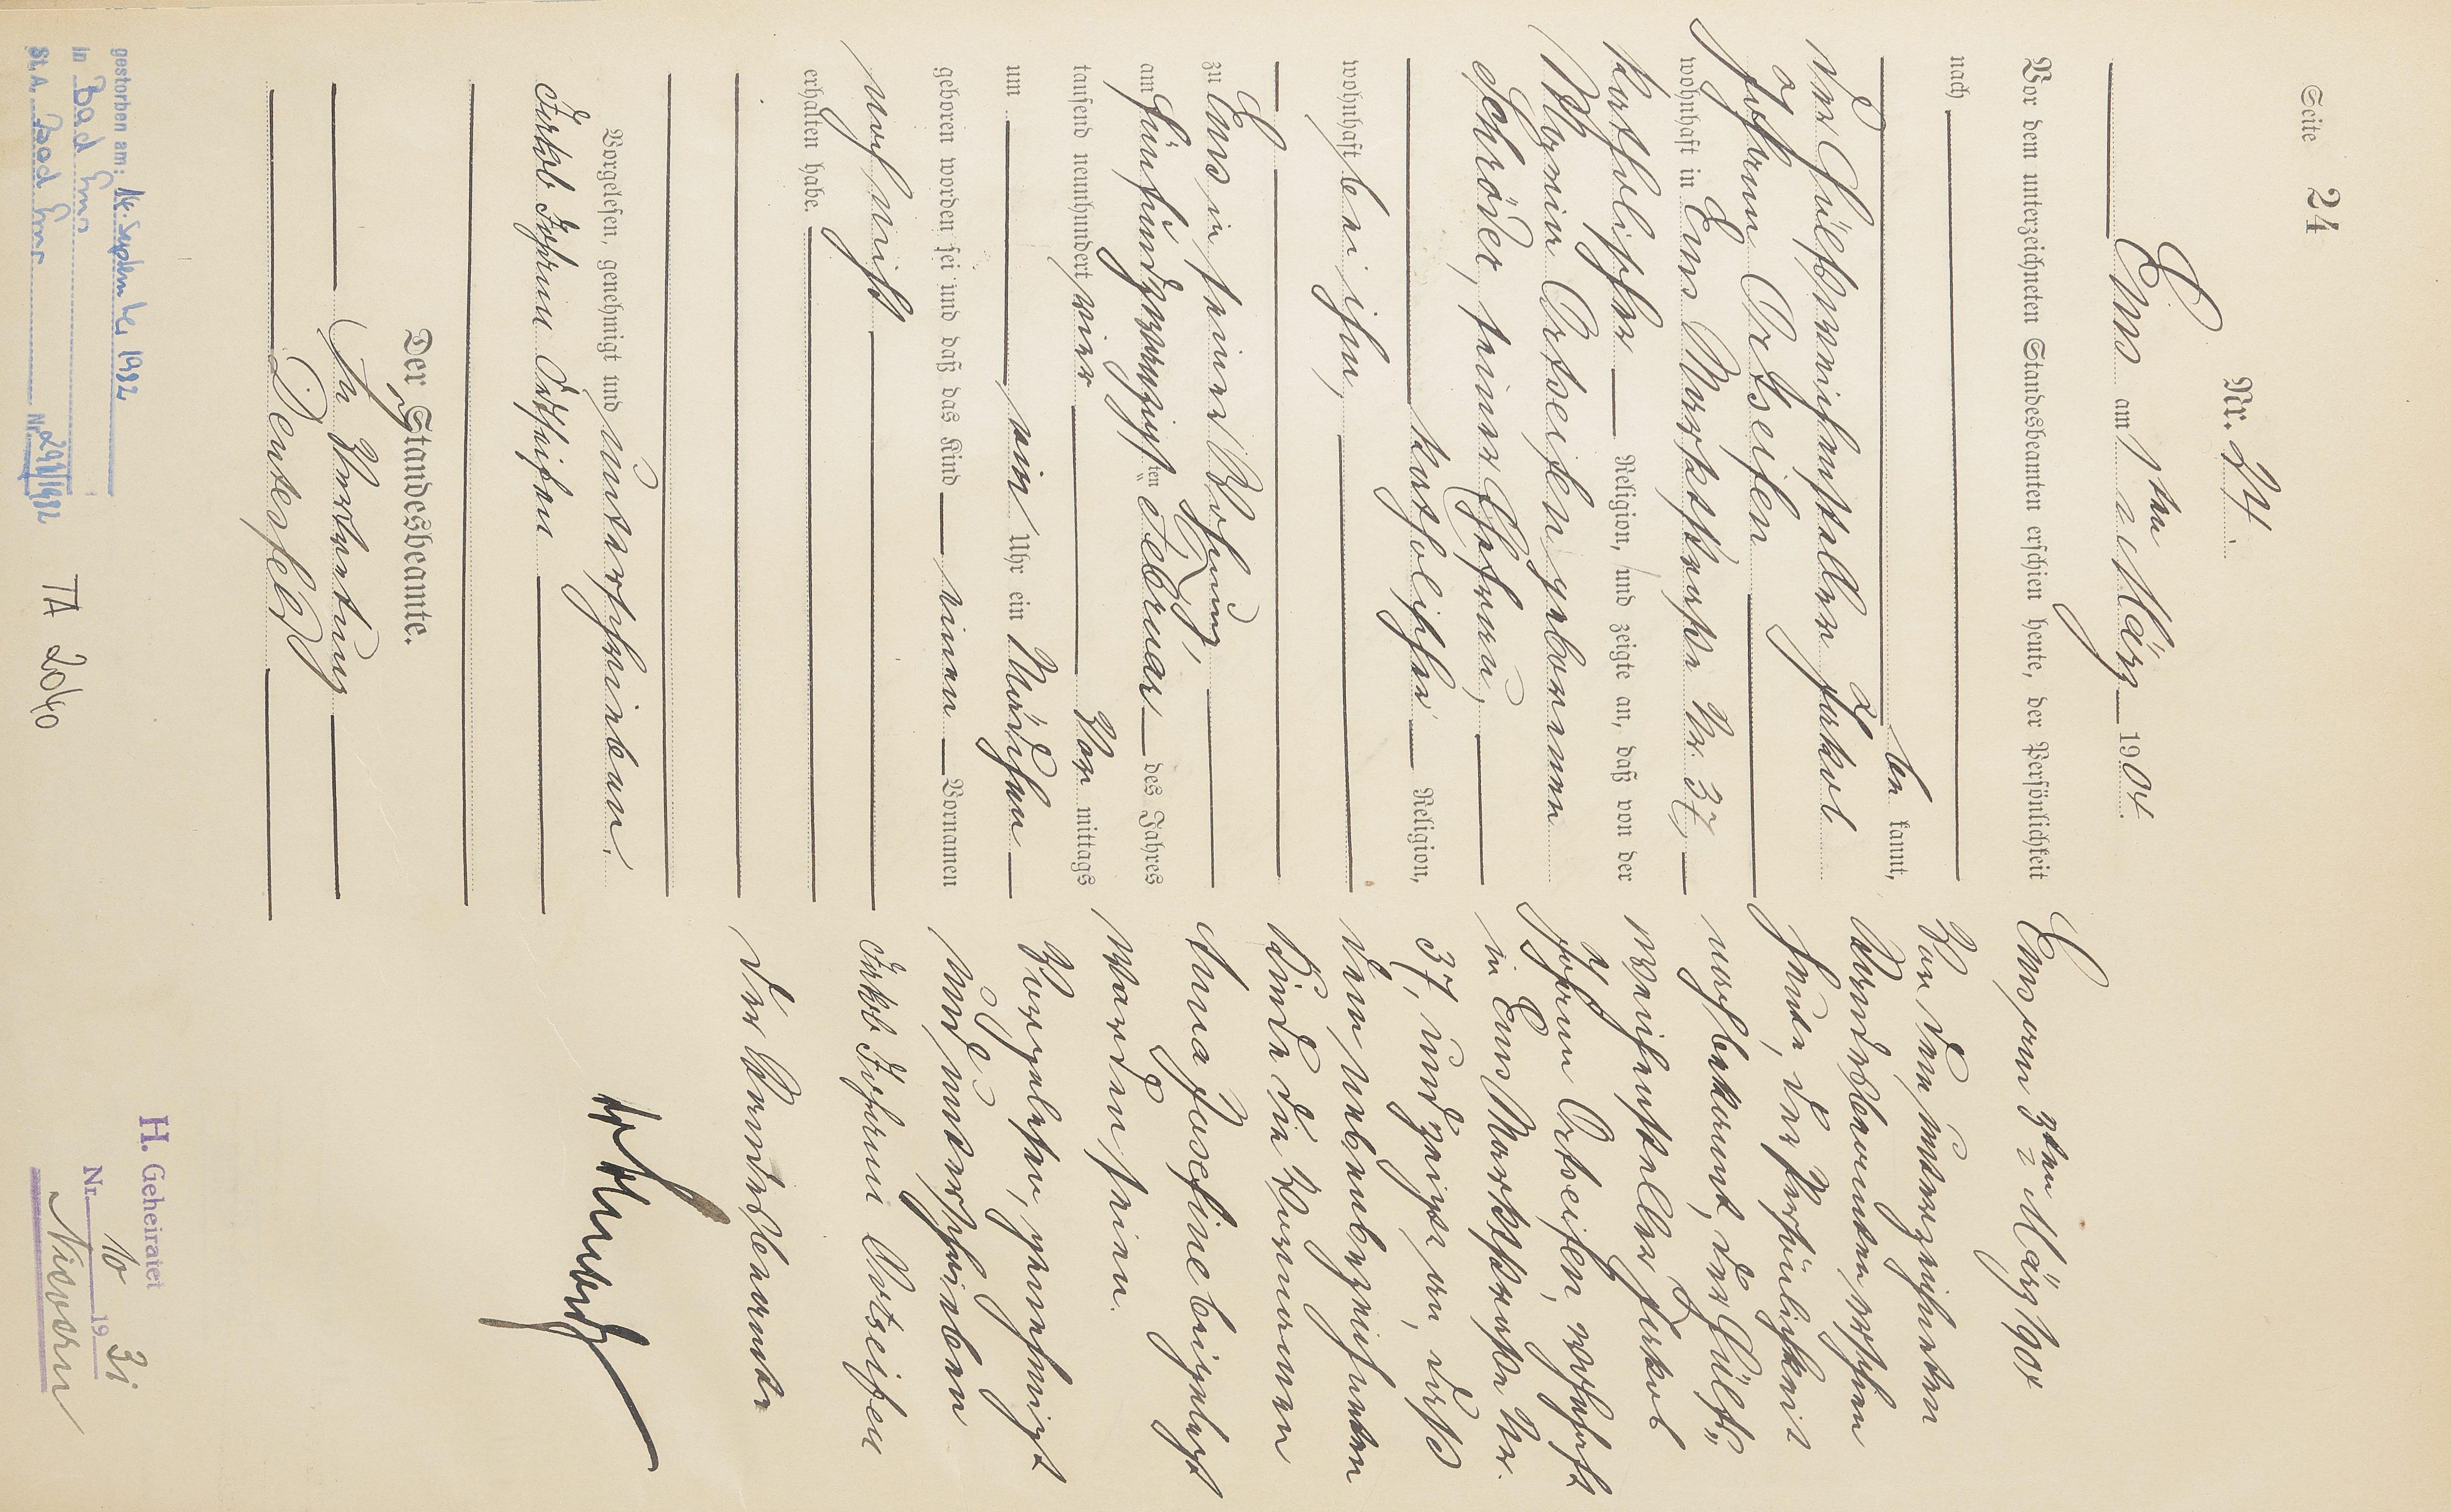 Seite 24
Nr. 24.
Ems am 1ten März 1904.
Vor dem unterzeichneten Standesbeamten erschien heute, der Persönlichkeit
nach
be kannt,
der Hülfsweichensteller Jakob
Johann Ortseifen
wohnhaft in Ems Marktstraße Nr. 37,
katholischer Religion, und zeigte an, daß von der
Maria Ortseifen geborenen
Schröder, seiner Ehefrau,
katholischer Religion,
wohnhaft bei ihm,
zu Ems in seiner Wohnung,
am fünfundzwanzigsten Februar des Jahres
tausend neunhundert vier Vor mittags
um ein Uhr ein Mädchen
geboren worden sei und daß das Kind einen Vornamen
noch nicht
erhalten habe.
Vorgelesen, genehmigt und unterschrieben.
Jakob Johann Ortseifen
Der Standesbeamte.
In Vertretung
Ems, am 3ten März 1904
Vor dem unterzeichneten
Standesbeamten erschien
heute, der Persönlichkeit
nach bekannt, der Hülfs-
weichensteller Jakob
Johann Ortseifen, wohnhaft
in Ems Marktstraße Nr.
37, und zeigte an, daß
dem nebenbezeichneten
Kinde die Vornamen
Anna Josefine beigelegt
worden seien.
Vorgelesen, genehmigt
und unterschrieben
Jakob Johann Ortseifen
Der Standesbeamte
gestorben am: 14. September 1982
in Bad Ems
St. A. Bad Ems Nr. 291/1982
TA 2040
H. Geheiratet
Nr. 10 1931
Nievern